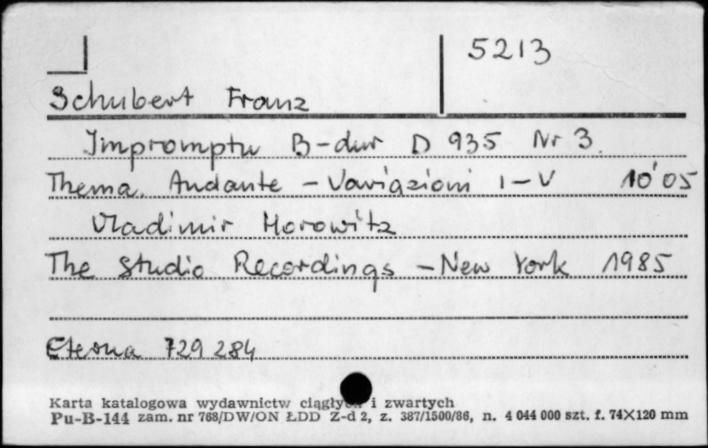 5213
Schubert Franz
Impromptu B-dur D 935 Nr 3.
Thema. Andante - Variazioni I-V 10'05
Vladimir Horowitz
The Studio Recordings - New York 1985
Eterna 729 284
Karta katalogowa wydawnictw ciągłych i zwartych
Pu-B-144 zam. nr 768/DW/ON ŁDD Z-d 2, z. 387/1500/86, n. 4 044 000 szt. f. 74X120 mm